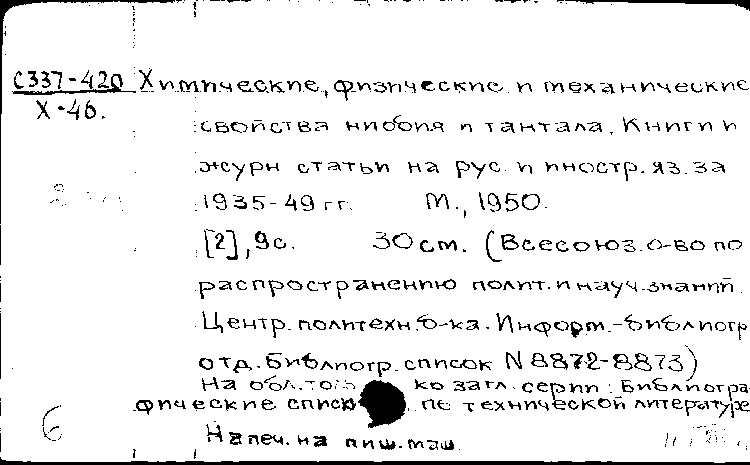 С337-420 Химические, физические и механические
Х-46.
свойства ниобия и тантала. Книги и
журн статьи на рус. и иностр. яз. за
1935-49 гг. М., 1950.
[2], 9с. 30 см. (Всесоюз. о-во по
распространению полит. и науч. знаний.
Центр. политехн. б-ка. Информ.-библиогр
отд. Библиогр. список N 8872-8873)
На обл. ко загл. серии: Библиогра
фические списк по технической литературе
6
Напеч. на пиш. маш.